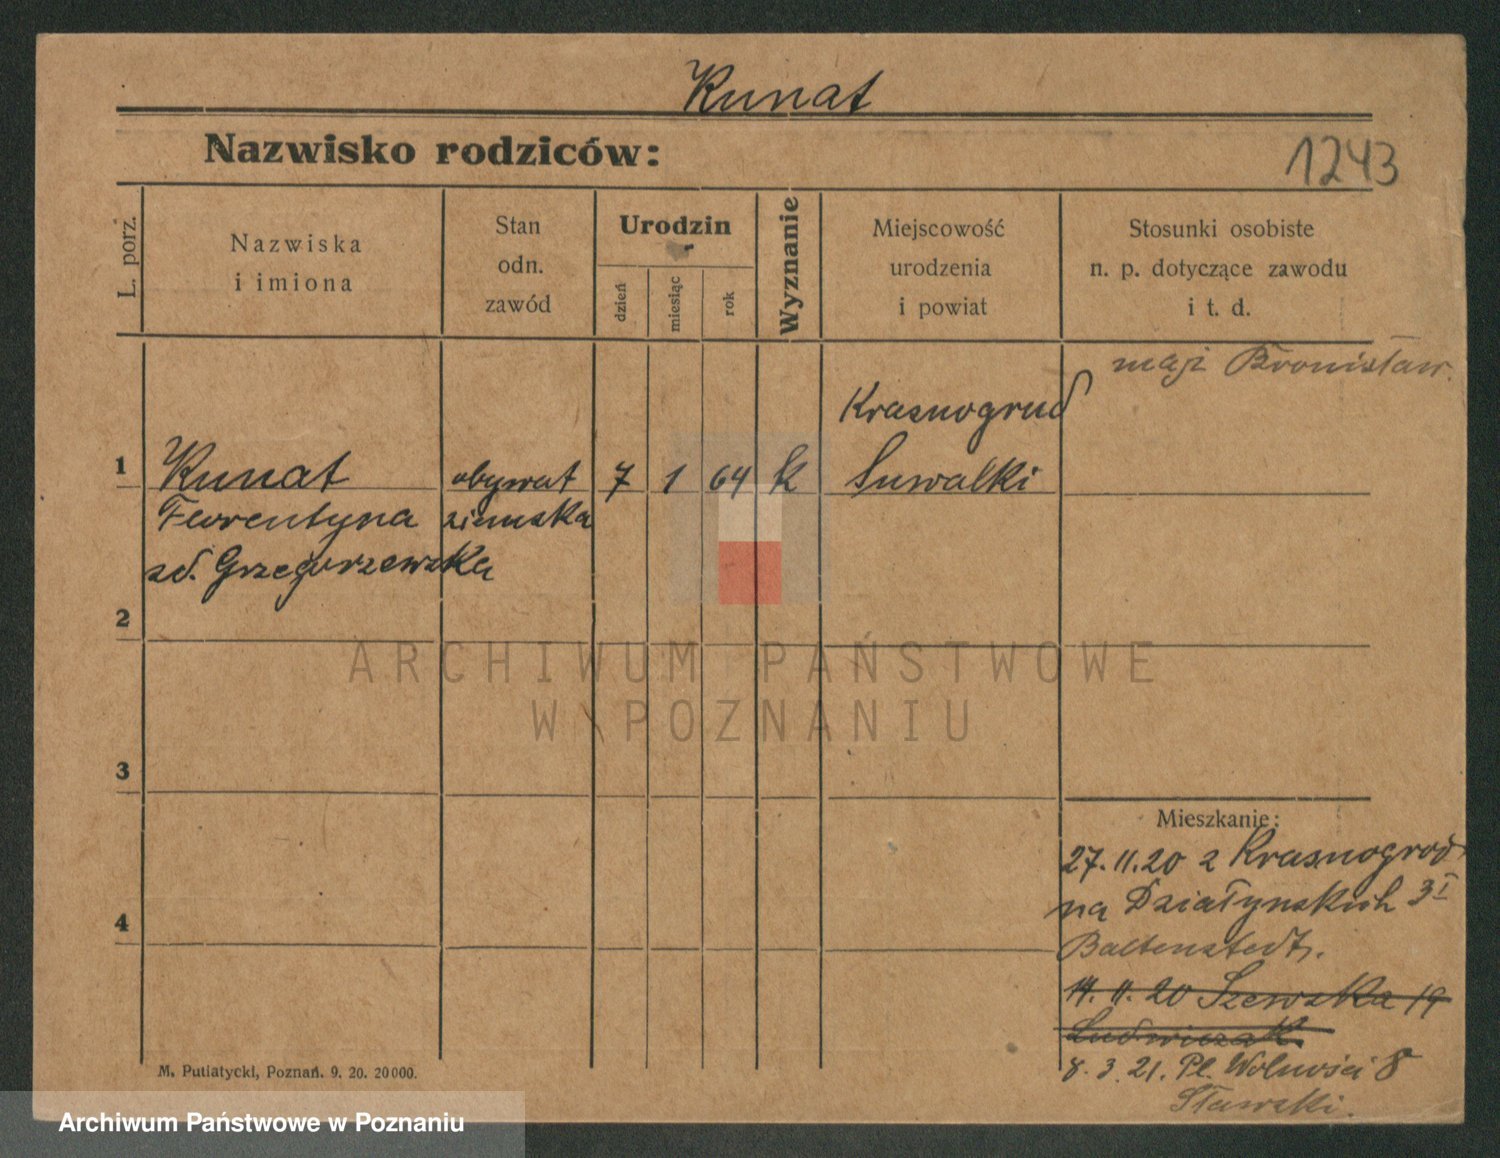 Kunat
Nazwisko rodziców:
1243
L. porz.
Nazwiska
i imiona
Stan
odn.
zawód
Urodzin
dzień
miesiąc
rok
Wyznanie
Miejscowość
urodzenia
i powiat
Stosunki osobiste
n. p. dotyczące zawodu
i t. d.
mąż Bronisław.
Krasnogrud
1 Kunat obywat 7 1 64 k Suwalki
Florentyna ziemska
zd. Grzegorzewska
2
ARCHIWUM PAŃSTWOWE
W POZNANIU
3
Mieszkanie:
27.11.20 z Krasnogrod
na Działyńskich 3 I
4
Baltenstedt.
14.11.20 Szewska 19
Ludwiczak.
8.3.21. Pl. Wolności 8
Sławski.
M. Putiatycki, Poznań. 9. 20. 20000.
Archiwum Państwowe w Poznaniu